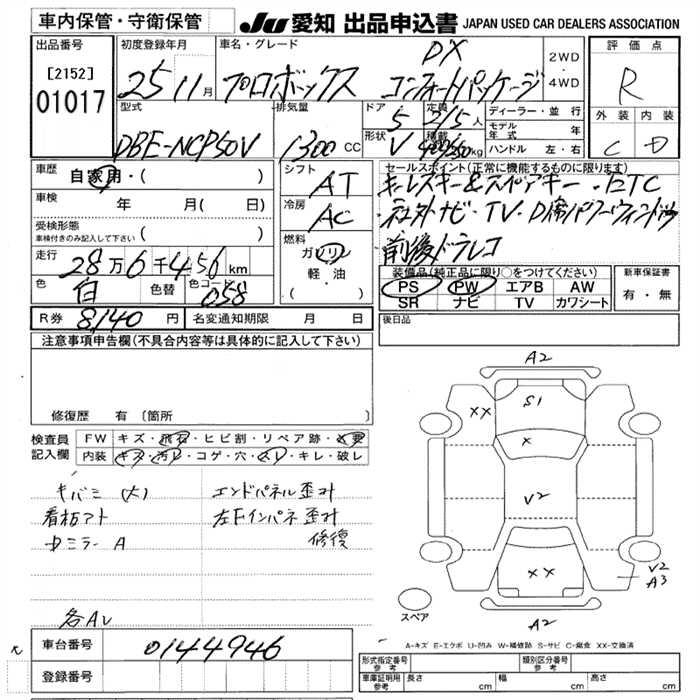 車内保管・守衛保管
JU 愛知 出品申込書 JAPAN USED CAR DEALERS ASSOCIATION
出品番号
[2152]
01017
初度登録年月
25 11月
車名・グレード
プロボックス DX コンフォートパッケージ
2WD
・
4WD
評価点
R
外装 内装
C D
型式
DBE-NCP50V
排気量
1300 CC
ドア 5
形状 V
定員 2/5人
積載 400/250kg
ディーラー・並行
モデル年式 年
ハンドル 左・右
車歴 自家用・( )
車検 年 月( 日)
受検形態
車検付きのみ記入して下さい ( )
走行 28万6千456km
色 白 色替 色コード 058
シフト AT
冷房 AC
燃料 ガソリン
軽・油
・( )
セールスポイント(正常に機能するものに限ります)
キーレスキー&スペアキー・ETC
・社外ナビ・TV・D席パワーウィンドウ
前後ドラレコ
装備品(純正品に限り○をつけてください)
PS PW エアB AW
SR ナビ TV カワシート
新車保証書
有・無
R券 8,140円 名変通知期限 月 日
後日品
注意事項申告欄(不具合内容等は具体的に記入して下さい)
修復歴 有 〔箇所
検査員記入欄
FW キズ・飛石・ヒビ割・リペア跡・X要
内装 キズ・汚レ・コゲ・穴・スレ・キレ・破レ
キバミ(大) エンドパネル歪ミ
看板アト 左Fインパネ歪ミ
修復
ミラー A
各AU
A2
S1
XX
X
V2
XX
V2
A3
A2
スペア
A-キズ E-エクボ U-凹み W-補修跡 S-サビ C-腐食 XX-交換済
車台番号 0144946
登録番号
形式指定番号 参考
類別区分番号 参考
車庫証明用 参考 長さ cm 幅 cm 高さ cm